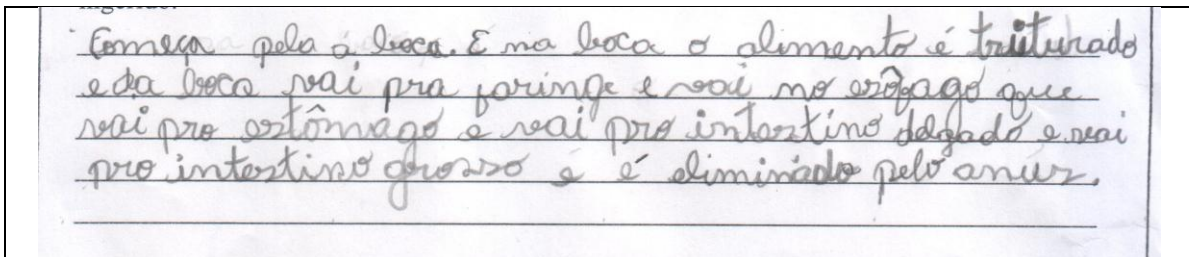 ingerido.
Começa pela a boca. E na boca o alimento é triturado
e da boca vai pra faringe e vai no esôfago que
vai pro estômago e vai pro intestino delgado e vai
pro intestino grosso e é eliminado pelo anus.